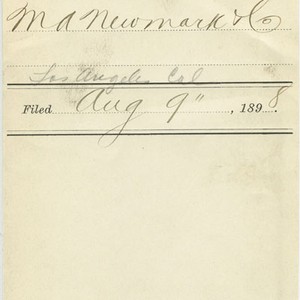 M A Newmark & Co
Los Angeles Cal
Filed Aug 9", 1898.